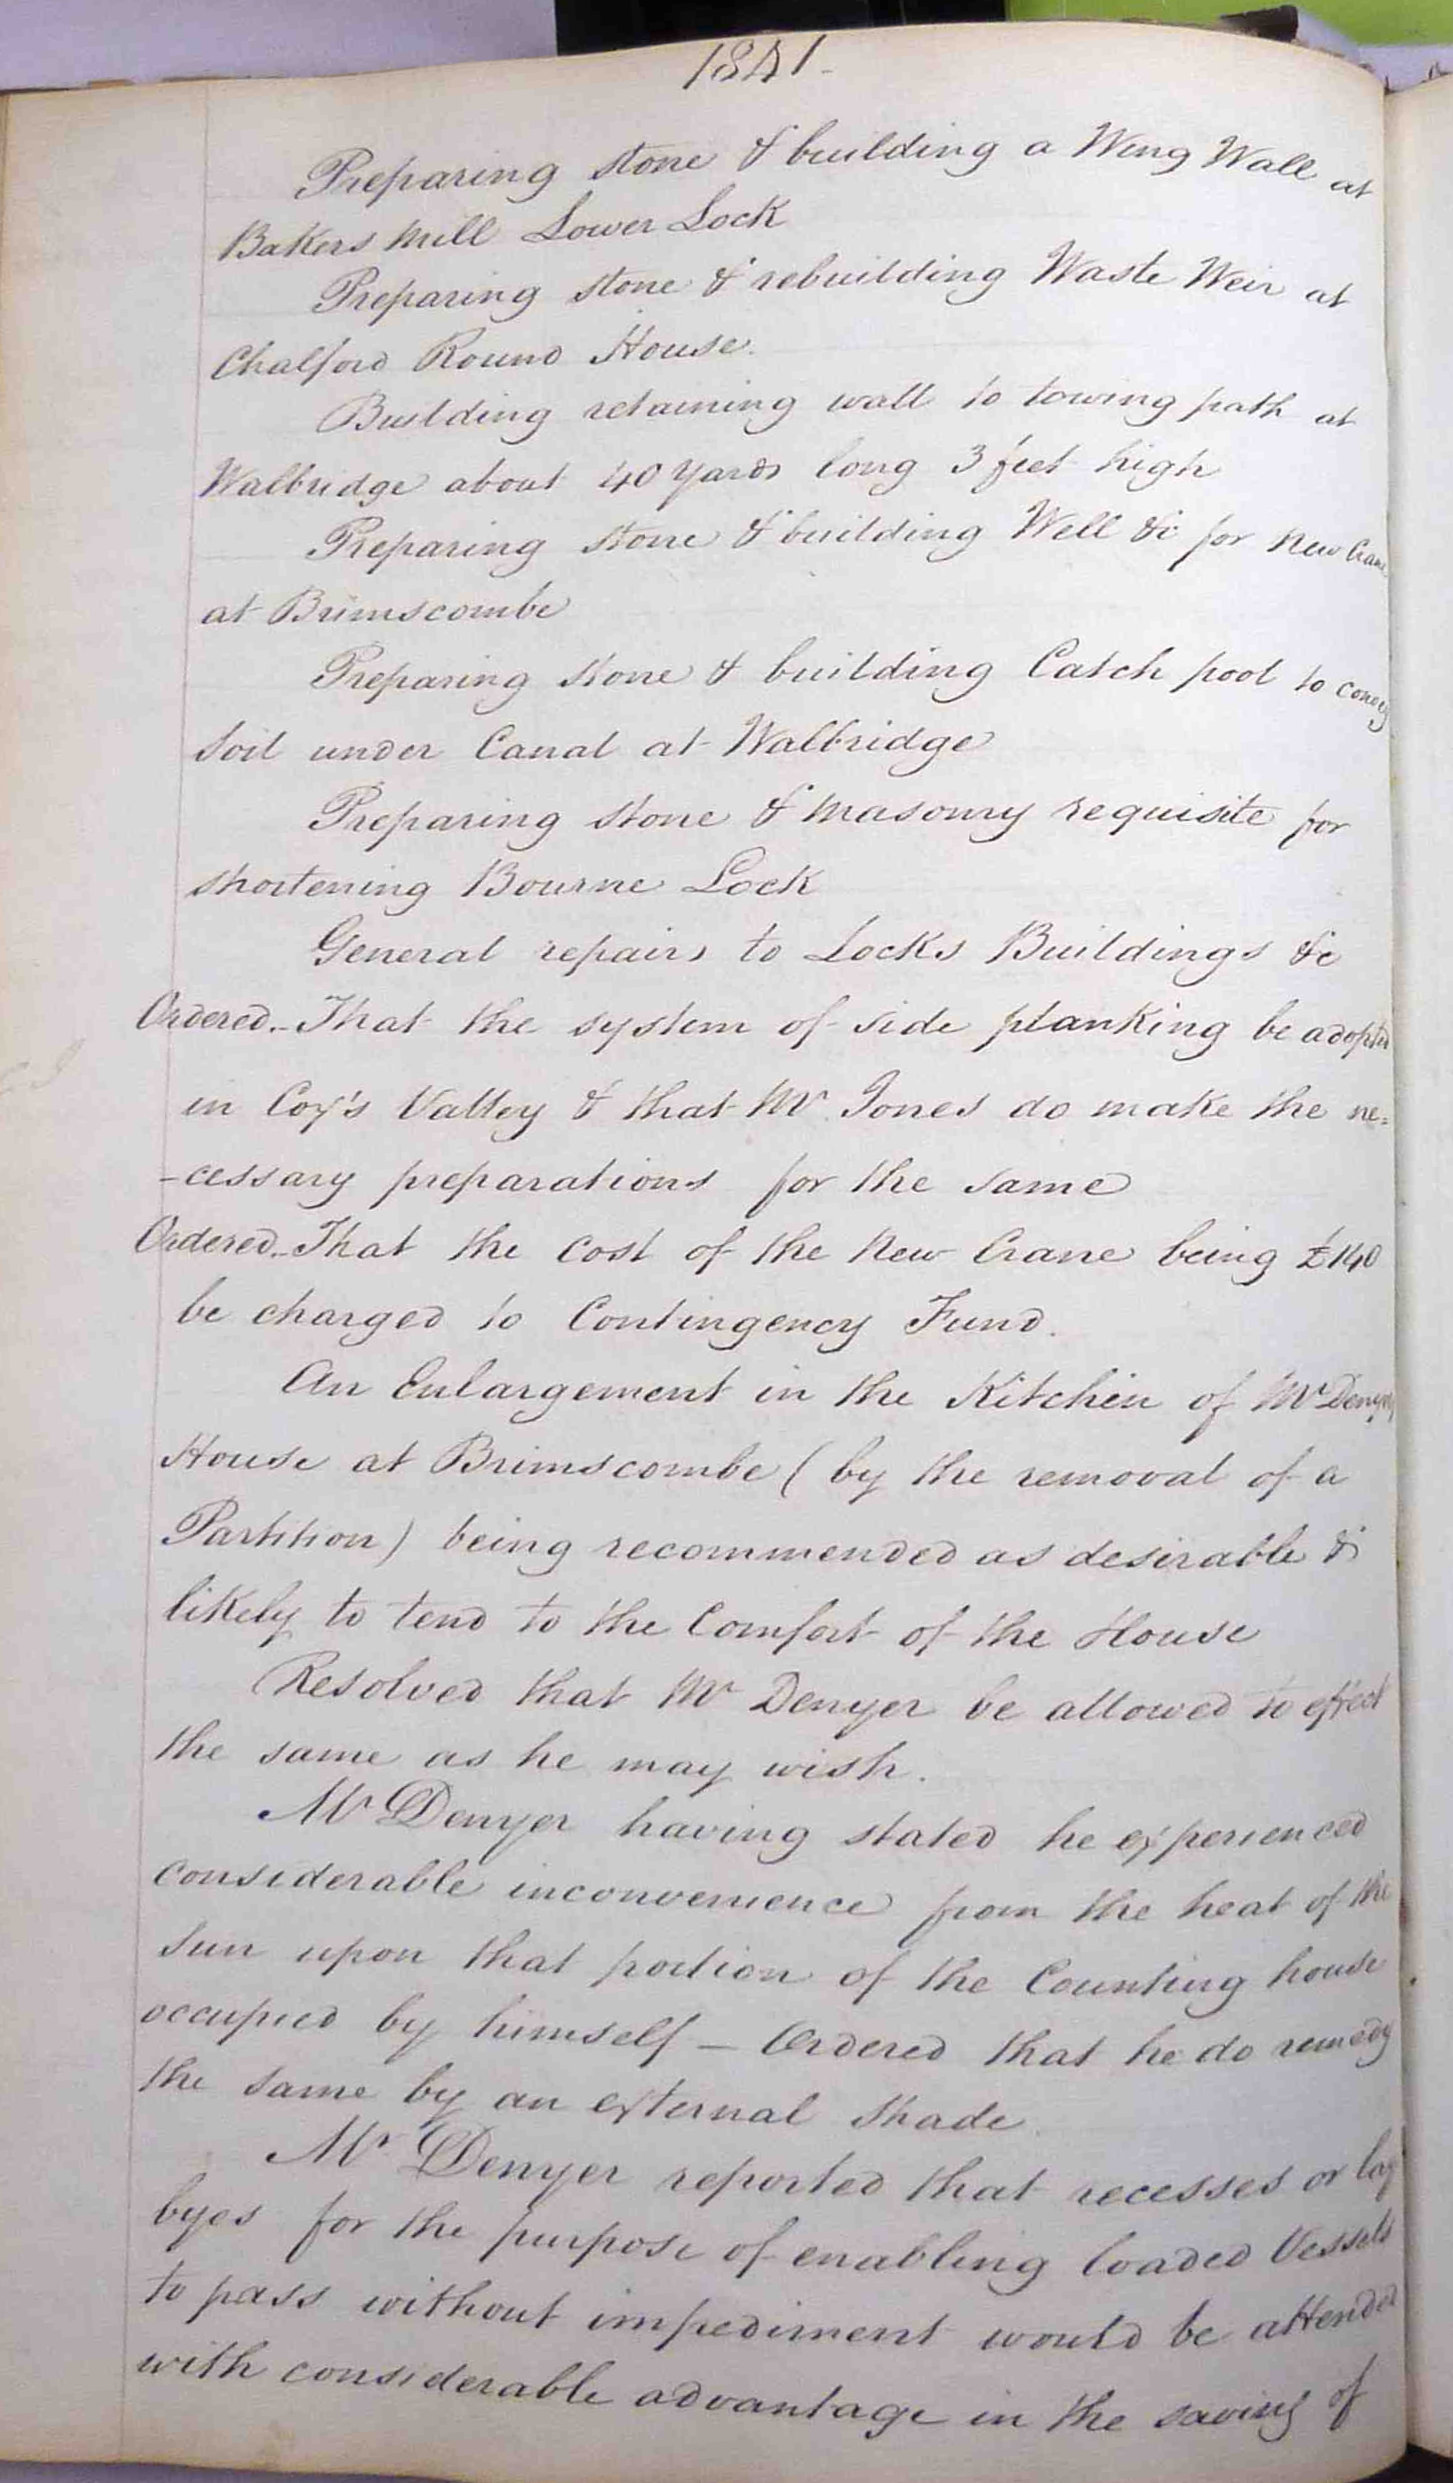 1841-
Preparing stone & building a Wing Wall at
Bakers Mill Lower Lock
Preparing stone & rebuilding Waste Weir at
Chalford Round House.
Building retaining wall to towing path at
Walbridge about 40 Yards long 3 feet high
Preparing stone & building Well &c for New Crane
at Brimscombe
Preparing stone & building Catch pool to convey
soil under Canal at Walbridge
Preparing stone & masonry requisite for
shortening Bourne Lock
General repairs to Locks Buildings &c
Ordered.- That the system of side planking be adopted
in Coy's Valley & that Mr. Jones do make the ne=
-cessary preparations for the same
Ordered.- That the cost of the New Crane being £140
be charged to Contingency Fund.
An Enlargement in the Kitchin of Mr Denyers
House at Brimscombe (by the removal of a
Partition) being recommended as desirable &
likely to tend to the Comfort of the House
Resolved that Mr Denyer be allowed to effect
the same as he may wish.
Mr Denyer having stated he experienced
considerable inconvenience from the heat of the
Sun upon that portion of the Counting house
occupied by himself - Ordered that he do remedy
the same by an external shade.
Mr Denyer reported that recesses or lay
byes for the purpose of enabling loaded Vessels
to pass without impediment would be attended
with considerable advantage in the saving of